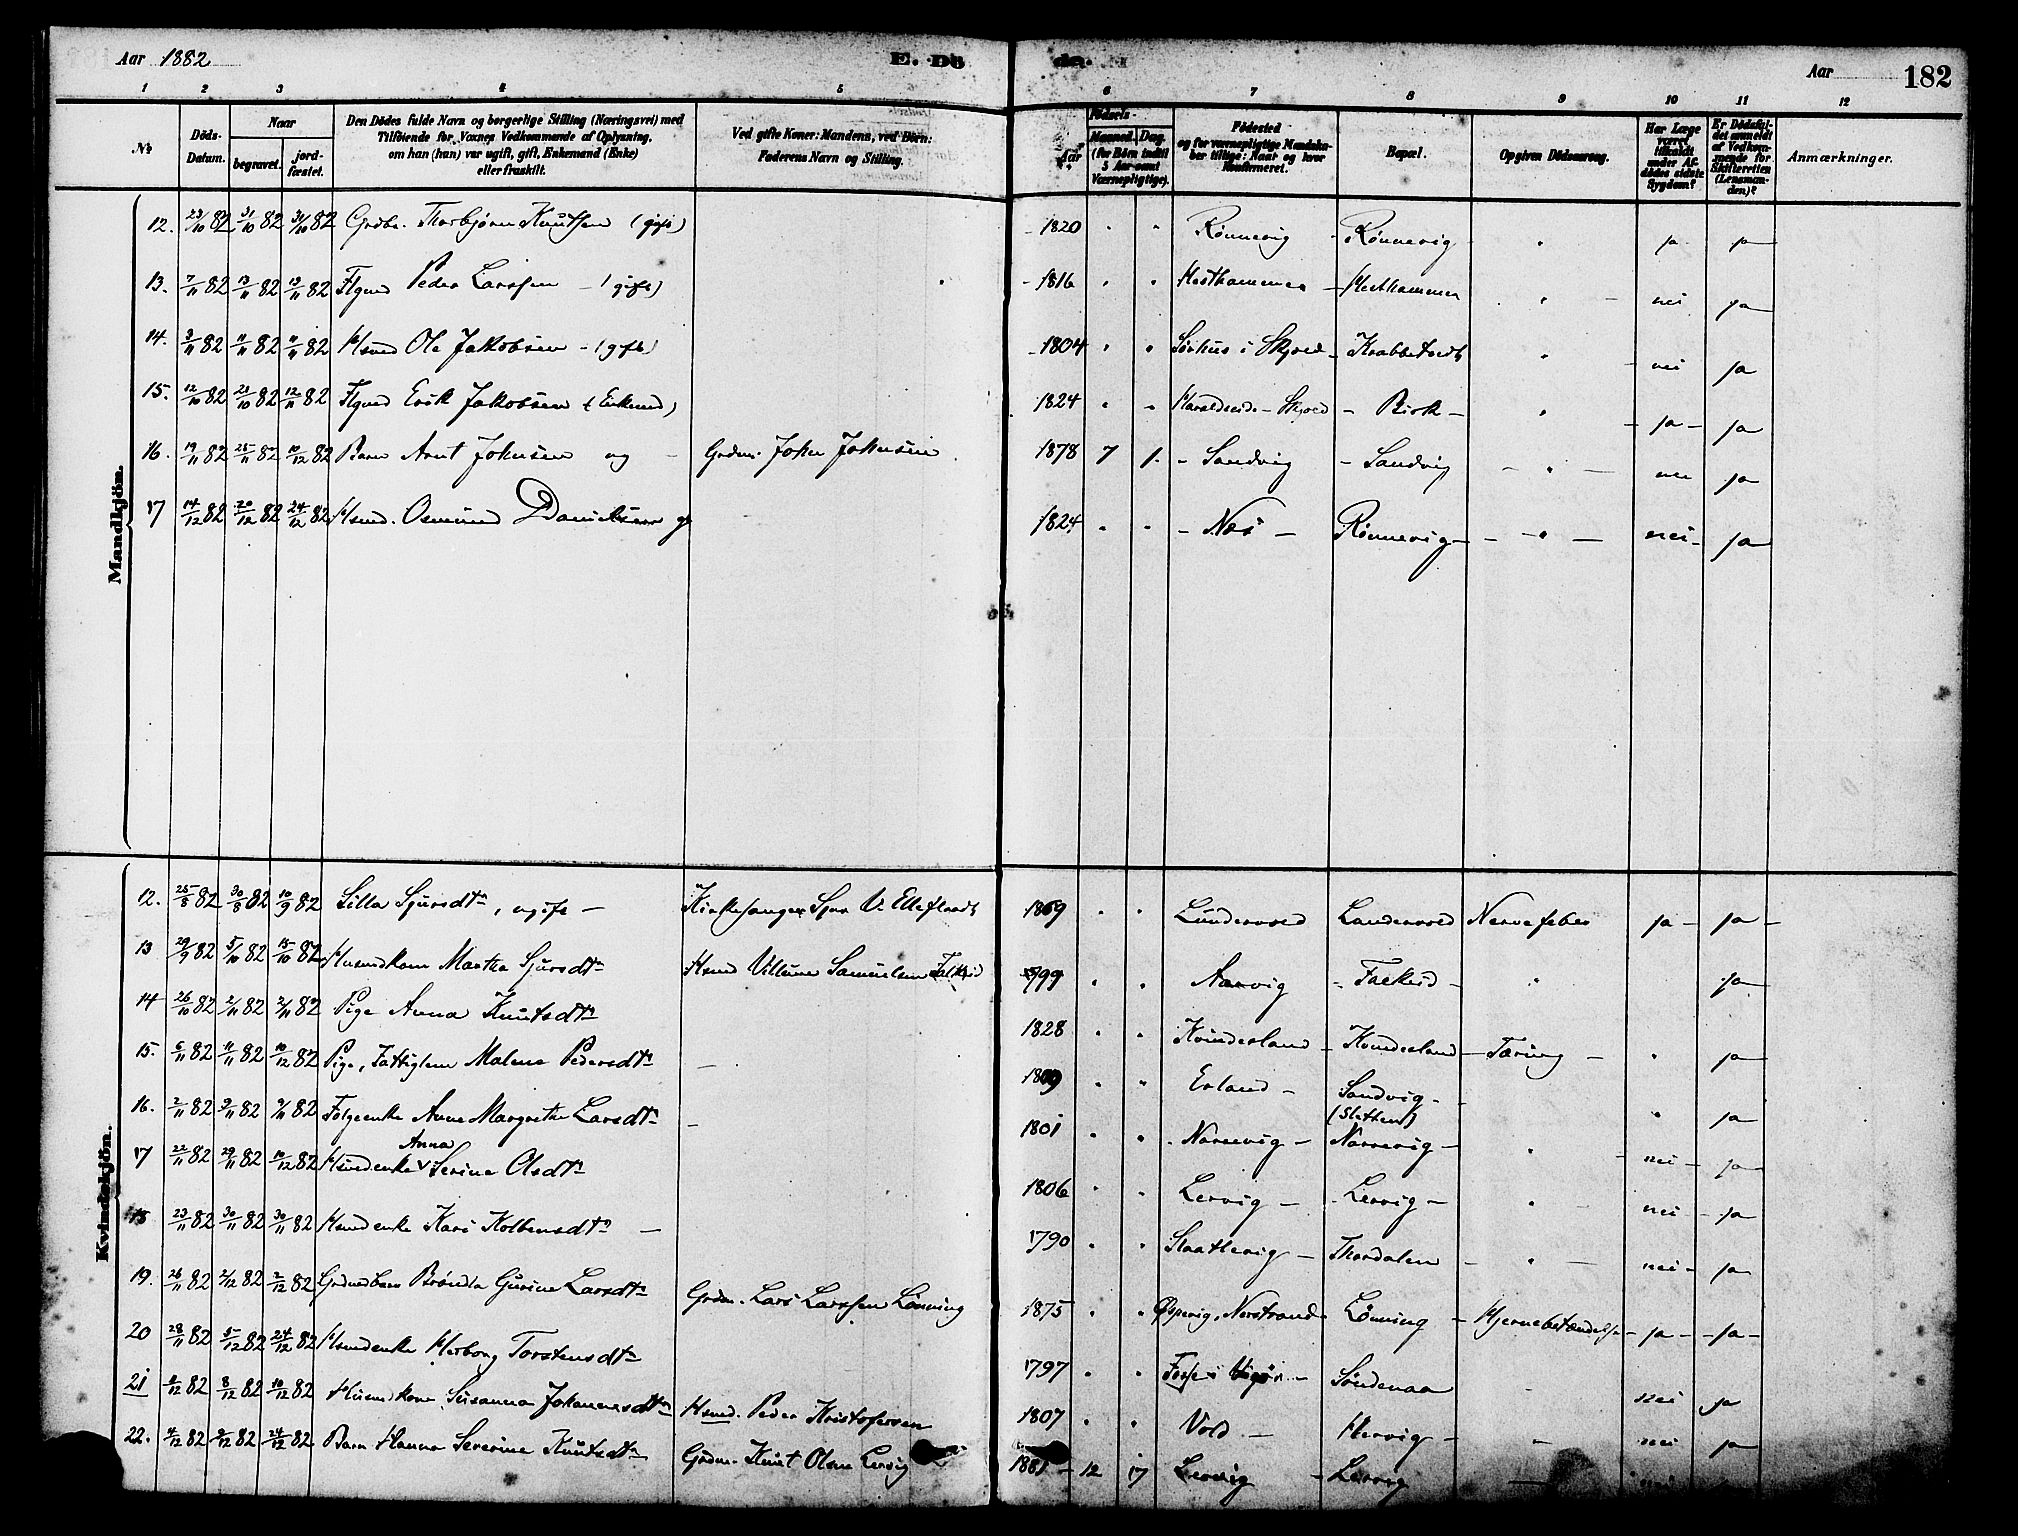 Aar 1882 E. Dö de. Aar 182
1 2 3 4 5 6 7 8 9 10 11 12
No. Döds-Datum. Naar begravet. jord-fæstet. Den Dödes fulde Navn og borgerlige Stilling (Næringsvei) med Tilföiende for Voxnes Vedkommende af Oplysning, om han (hun) var ugift, gift, Enkemand (Enke) eller fraskilt. Ved gifte Koner: Mandens, ved Börn: Faderens Navn og Stilling. Födsels- Aar Maaned. Dag. (for Börn indtil 5 Aar samt Værnepligtige). Födested og for værnepligtige Mandskaber tillige: Naar og hvor Konfirmeret. Bopæl. Opgiven Dödsaarsag. Har Læge været tilkaldt under Afdödes sidste Sygdom? Er Dödsfaldet anmeldt af Vedkommende for Skifteretten (Lensmanden)? Anmærkninger.
Mandkjön.
12. 23/10 82 31/10 82 31/10 82 Grdbr. Thorbjörn Knutsen (gift) 1820 " " Rönnevig Rönnevig " ja ja
13. 7/11 82 13/11 82 13/11 82 Flgmd Peder Larssen (gift) 1816 " " Hesthammer Hesthammer " nei ja
14. 3/11 82 11/11 82 11/11 82 Hsmd Ole Jakobsen (gift) 1804 " " Sörhus i Skjold Krabbetveit " nei ja
15. 12/10 82 21/10 82 12/11 82 Flgmd Erik Jakobsen (Enkmd) 1824 " " Haraldseide Skjold Birk " ja ja
16. 19/11 82 25/11 82 10/12 82 Barn Arnt Johnsen ug Grdm. John Johnsen 1878 7 1. Sandvig Sandvig " nei ja
17 14/12 82 20/12 82 24/12 82 Hsmd. Osmund Danielsen g 1824 " " Næs Rönnevig " nei ja
Kvindekjön.
12. 25/8 82 30/8 82 10/9 82 Silla Sjursdtr, ugift Kirkesanger Sjur V. Elleflaadt 1869 " " Lundervold Landervold Nervefeber ja ja
13 29/9 82 5/10 82 15/10 82 Husmdkone Martha Sjursdtr Hsmd Villum Samuelsen Falkeid 1799 " " Narvig Falkeid " ja
14 26/10 82 2/11 82 2/11 82 Pige Anna Knutsdtr 1828 " " Kvindesland Kvindesland Tæring " ja
15. 6/11 82 11/11 82 10/12 82 Pige, Fattiglem Malene Pedersdtr 1809 " " Erland Sandvig (Sletten) " ja
16. 2/11 82 9/11 82 9/11 82 Folgeenke Anne Margrethe Larsdtr 1801 " " Narrevig Narrevig " nei ja
17 22/11 82 29/11 82 10/12 82 Hsmdenke Anna Serine Olsdtr 1806 " " Lervig Lervig " nei ja
18 23/11 82 30/11 82 30/11 82 Hsmdenke Kari Kolbensdtr 1790 " " Slaattevig Thordalen " nei ja
19. 26/11 82 2/12 82 2/12 82 Grdmdbarn Brönla Gurine Larsdtr Grdm. Lars Larssen Lönning 1875 " " Ospevig, Nerstrand Lönning Hjernebetændelse ja ja
20 28/11 82 5/12 82 24/12 82 Hsmdenke Herborg Torstensdtr 1797 " " Fosse i Söndenaa nei ja
21 2/12 82 8/12 82 10/12 82 Husmdkone Susanna Johannesdtr Hsmd. Peder Kristofersen 1807 " " Vold Hervig nei ja
22. 4/12 82 9/12 82 24/12 82 Barn Hanna Severine Knutsdtr Grdm. Knut Olsen Lervig 1881 12 17 Lervig Lervig nei ja